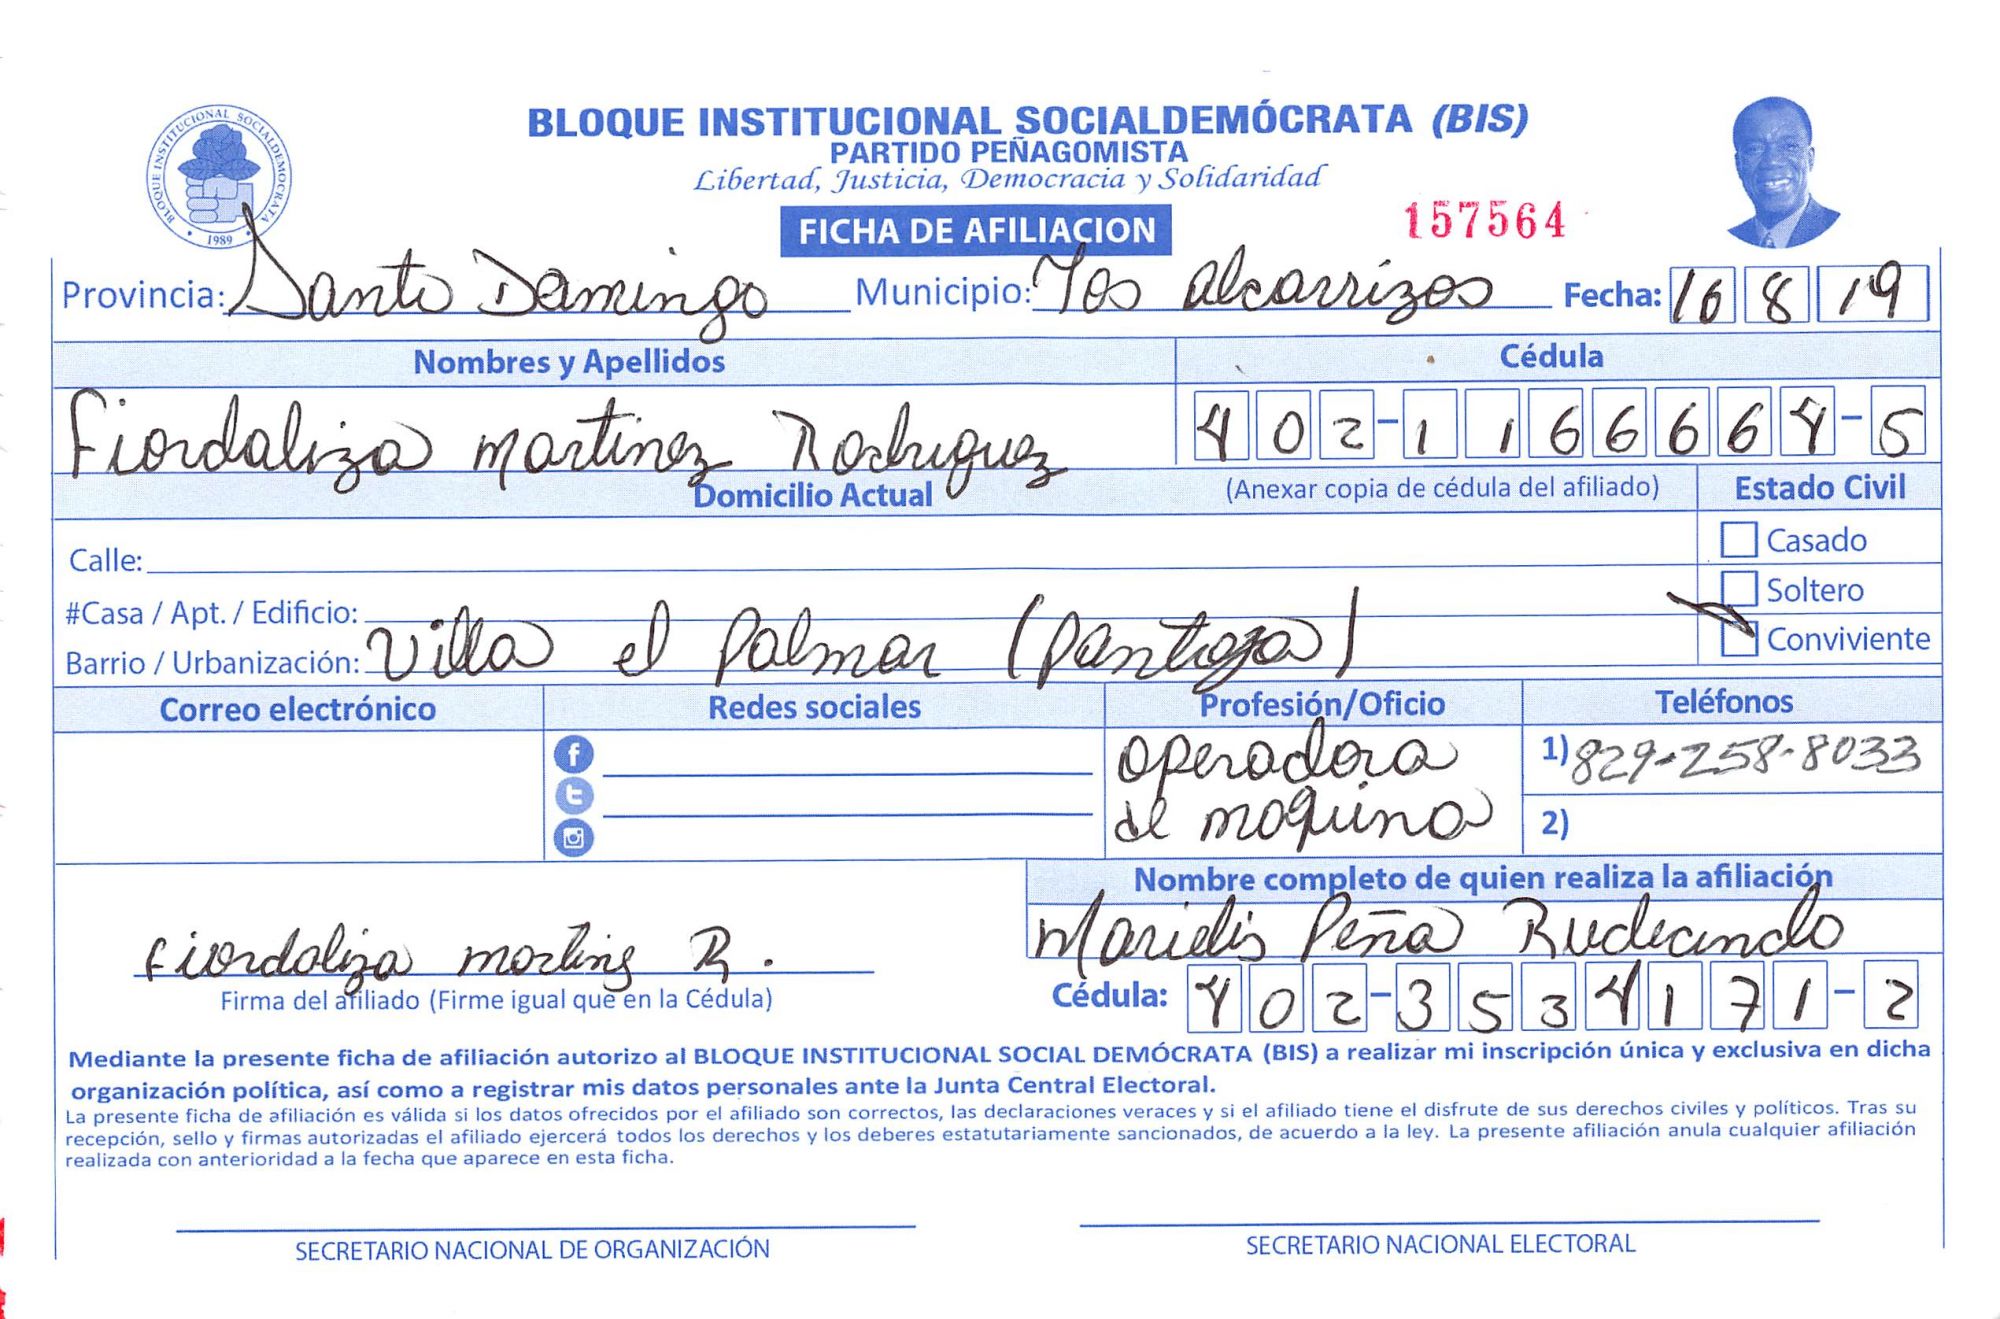 BLOQUE INSTITUCIONAL SOCIALDEMÓCRATA (BIS)
PARTIDO PEÑAGOMISTA
Libertad, Justicia, Democracia y Solidaridad
BLOQUE INSTITUCIONAL SOCIALDEMOCRATA
1989
FICHA DE AFILIACION
157564
Provincia: Santo Domingo Municipio: Los alcarrizos Fecha: 16 8 19
Nombres y Apellidos Cédula
Fiordaliza martinez Rodriguez 402-1166664-5
Domicilio Actual (Anexar copia de cédula del afiliado) Estado Civil
Calle: Casado
#Casa / Apt. / Edificio: Soltero
Barrio / Urbanización: Villa el Palmar (Pantoja) Conviviente
Correo electrónico Redes sociales Profesión/Oficio Teléfonos
operadora 1) 829-258-8033
de maquina 2)
Nombre completo de quien realiza la afiliación
Marielis Peña
Fiordaliza martinez R.
Firma del afiliado (Firme igual que en la Cédula) Cédula: 402-3534171-2
Mediante la presente ficha de afiliación autorizo al BLOQUE INSTITUCIONAL SOCIAL DEMÓCRATA (BIS) a realizar mi inscripción única y exclusiva en dicha
organización política, así como a registrar mis datos personales ante la Junta Central Electoral.
La presente ficha de afiliación es válida si los datos ofrecidos por el afiliado son correctos, las declaraciones veraces y si el afiliado tiene el disfrute de sus derechos civiles y políticos. Tras su
recepción, sello y firmas autorizadas el afiliado ejercerá todos los derechos y los deberes estatutariamente sancionados, de acuerdo a la ley. La presente afiliación anula cualquier afiliación
realizada con anterioridad a la fecha que aparece en esta ficha.
SECRETARIO NACIONAL DE ORGANIZACIÓN SECRETARIO NACIONAL ELECTORAL